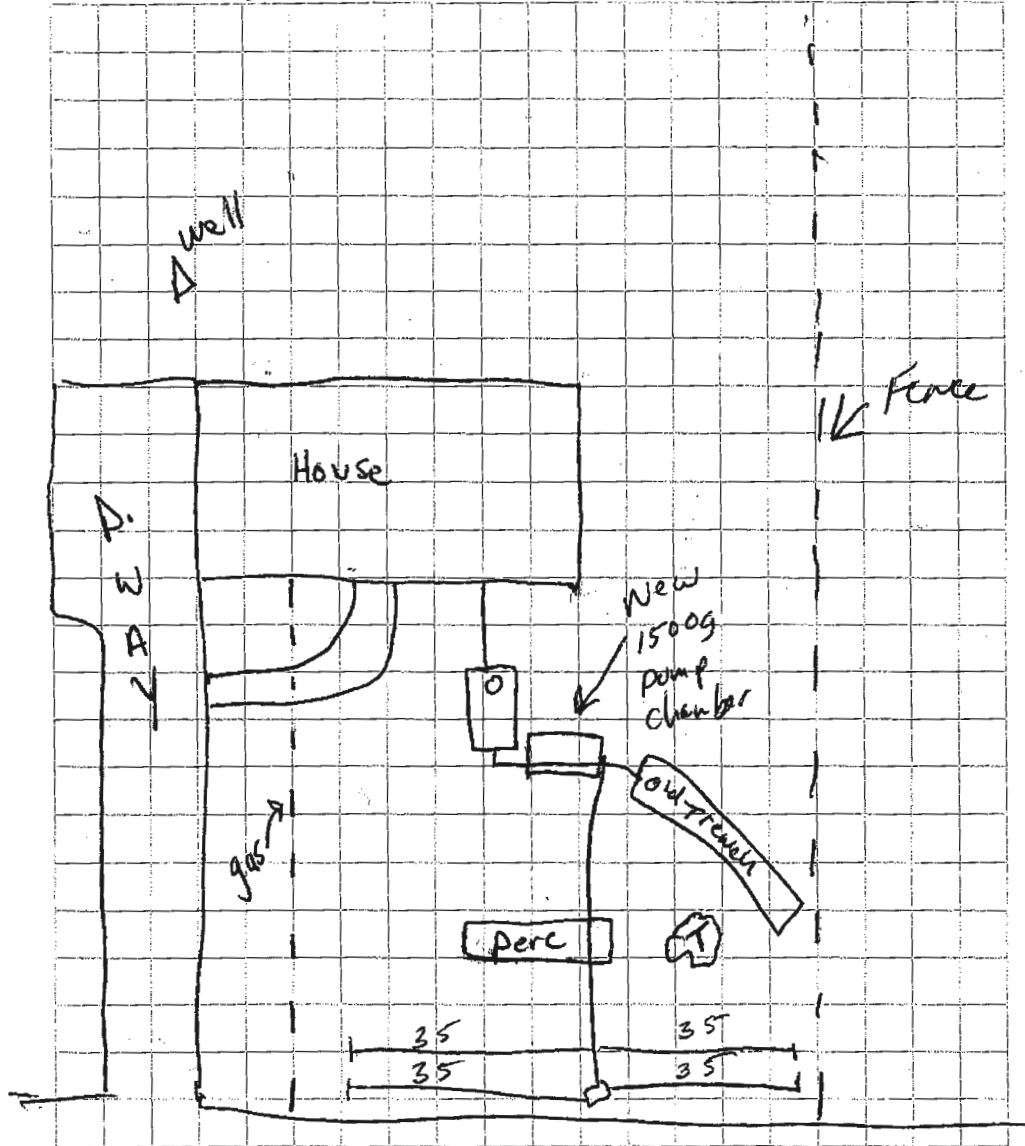 well
Fence
House
D.
W
A
Y
New
1500g
pump
chamber
old trench
gas
perc
T
35
35
35
35